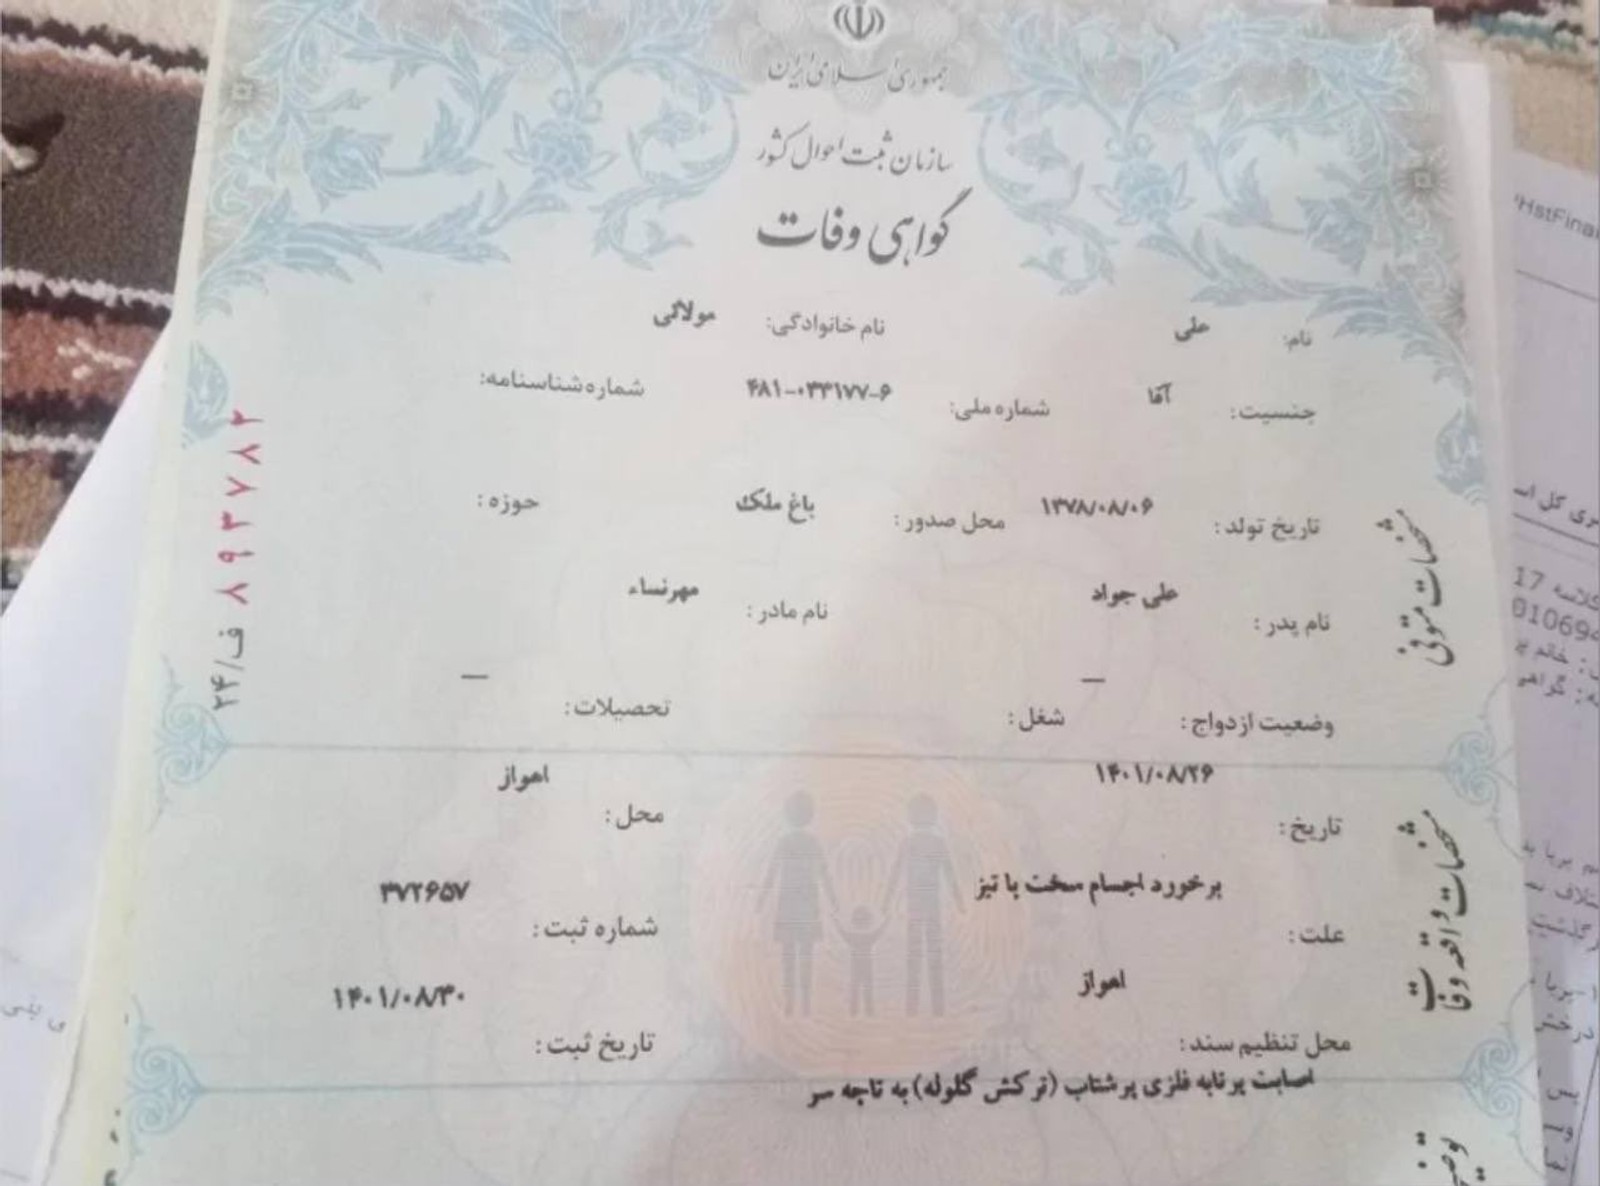 جمهوری اسلامی ایران
سازمان ثبت احوال کشور
گواهی وفات
نام: علی نام خانوادگی: مولائی
جنسیت: آقا شماره ملی: ۴۸۱-۰۳۳۱۷۷-۶ شماره شناسنامه:
تاریخ تولد: ۱۳۷۸/۰۸/۰۶ محل صدور: باغ ملک حوزه:
نام پدر: علی جواد نام مادر: مهرنساء
وضعیت ازدواج: — شغل: تحصیلات: —
مشخصات متوفی
تاریخ: ۱۴۰۱/۰۸/۲۶ محل: اهواز
علت: برخورد اجسام سخت یا تیز شماره ثبت: ۳۷۲۶۵۷
محل تنظیم سند: اهواز تاریخ ثبت: ۱۴۰۱/۰۸/۳۰
مشخصات واقعه وفات
اصابت پرتابه فلزی پرشتاب (ترکش گلوله) به ناحیه سر
ف/۲۴ ۸۹۳۷۸۲
HstFina
ری کل اس
کلاسه 17
01069
خانم پر
گواهی